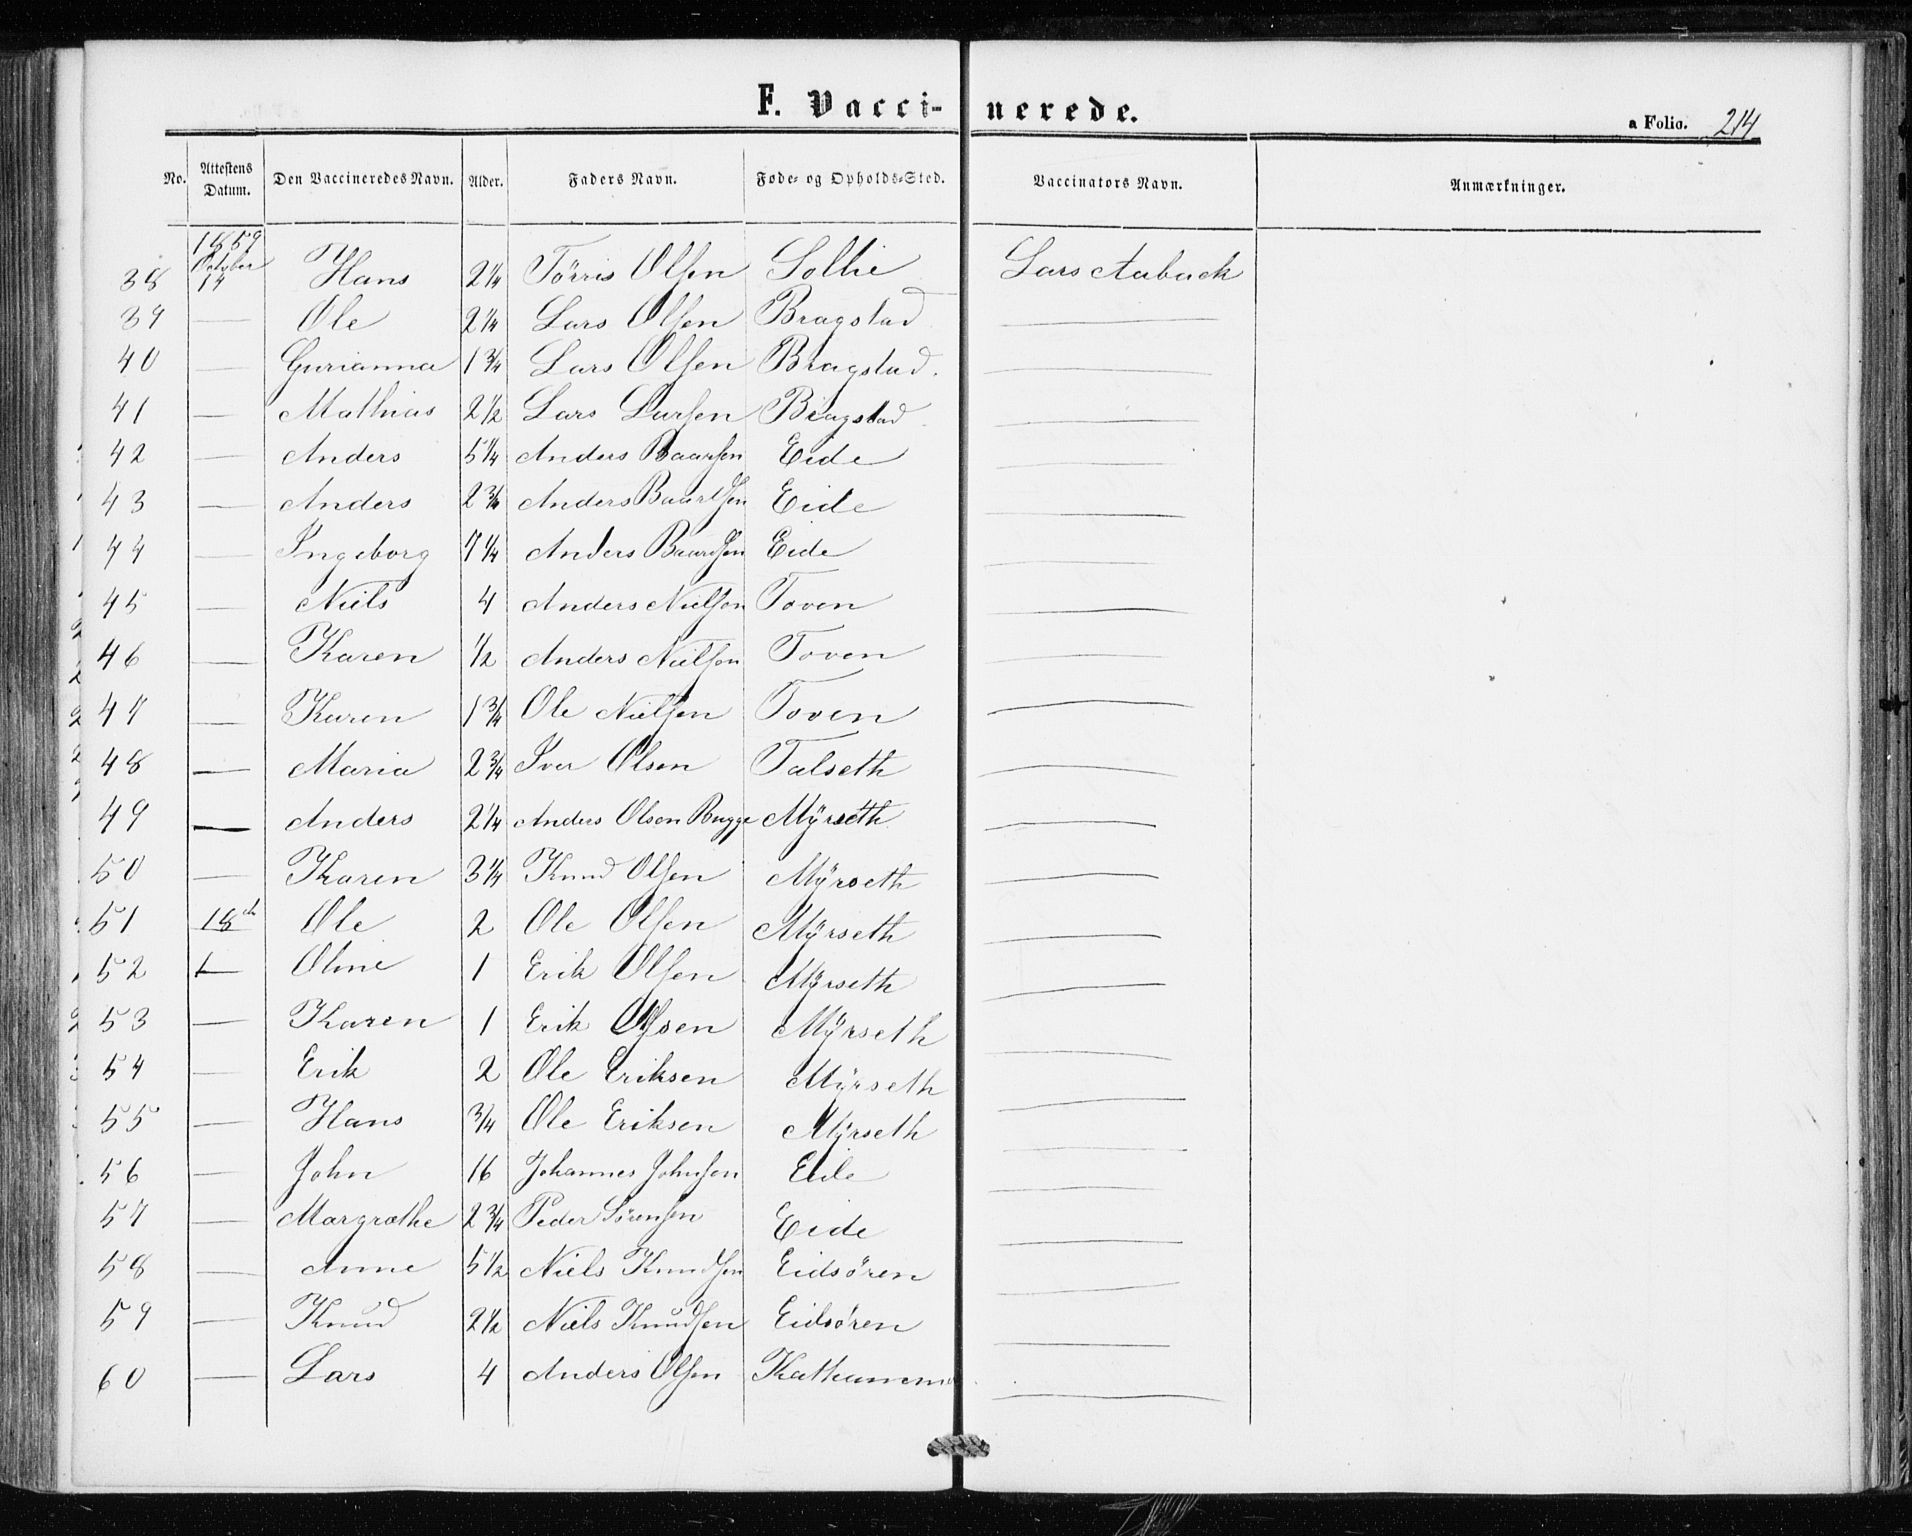 F. Vacci- nerede.
a Folio. 214
No. Attestens Datum. Den Vaccineredes Navn. Alder. Faders Navn. Føde- og Opholds-Sted. Vaccinators Navn. Anmærkninger.
1859
October
38 14 Hans 2 1/4 Törris Olsen Sollie Lars Aaback
39 — Ole 2 1/4 Lars Olsen Bragstad —
40 — Gurianna 1 3/4 Lars Olsen Bragstad. —
41 — Mathias 2 1/2 Lars Larsen Bragstad —
42 — Anders 5 1/4 Anders Baarsen Eide —
43 — Anders 2 3/4 Anders Baardsen Eide —
44 — Ingeborg 7 1/4 Anders Baardsen Eide —
45 — Niels 4 Anders Nielsen Toven —
46 — Karen 1/2 Anders Nielsen Toven —
47 — Karen 1 3/4 Ole Nielsen Toven —
48 — Maria 2 3/4 Iver Olsen Talseth —
49 — Anders 2 1/4 Anders Olsen Bugge Mÿrseth —
50 — Karen 3 1/4 Knud Olsen Mÿrseth —
51 18de Ole 2 Ole Olsen Mÿrseth —
52 — Oline 1 Erik Olsen Mÿrseth —
53 — Karen 1 Erik Olsen Mÿrseth —
54 — Erik 2 Ole Eriksen Mÿrseth —
55 — Hans 3/4 Ole Eriksen Mÿrseth —
56 — John 16 Johannes Johnsen Eide —
57 — Margrethe 2 3/4 Peder Sörensen Eide —
58 — Anne 5 1/2 Niels Knudsen Eidsören —
59 — Knud 2 1/2 Niels Knudsen Eidsören —
60 — Lars 4 Anders Olsen —